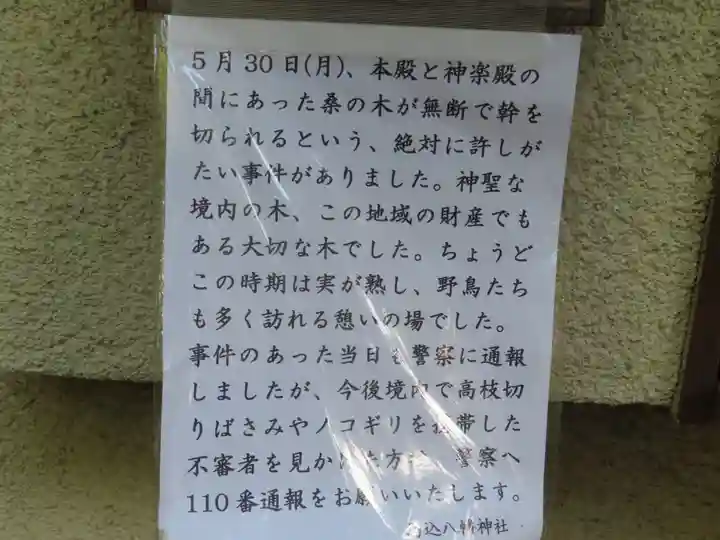 5月30日(月)、本殿と神楽殿の
間にあった桑の木が無断で幹を
切られるという、絶対に許しが
たい事件がありました。神聖な
境内の木、この地域の財産でも
ある大切な木でした。ちょうど
この時期は実が熟し、野鳥たち
も多く訪れる憩いの場でした。
事件のあった当日も警察に通報
しましたが、今後境内で高枝切
りばさみやノコギリを携帯した
不審者を見かけた方は、警察へ
110番通報をお願いいたします。
込八幡神社